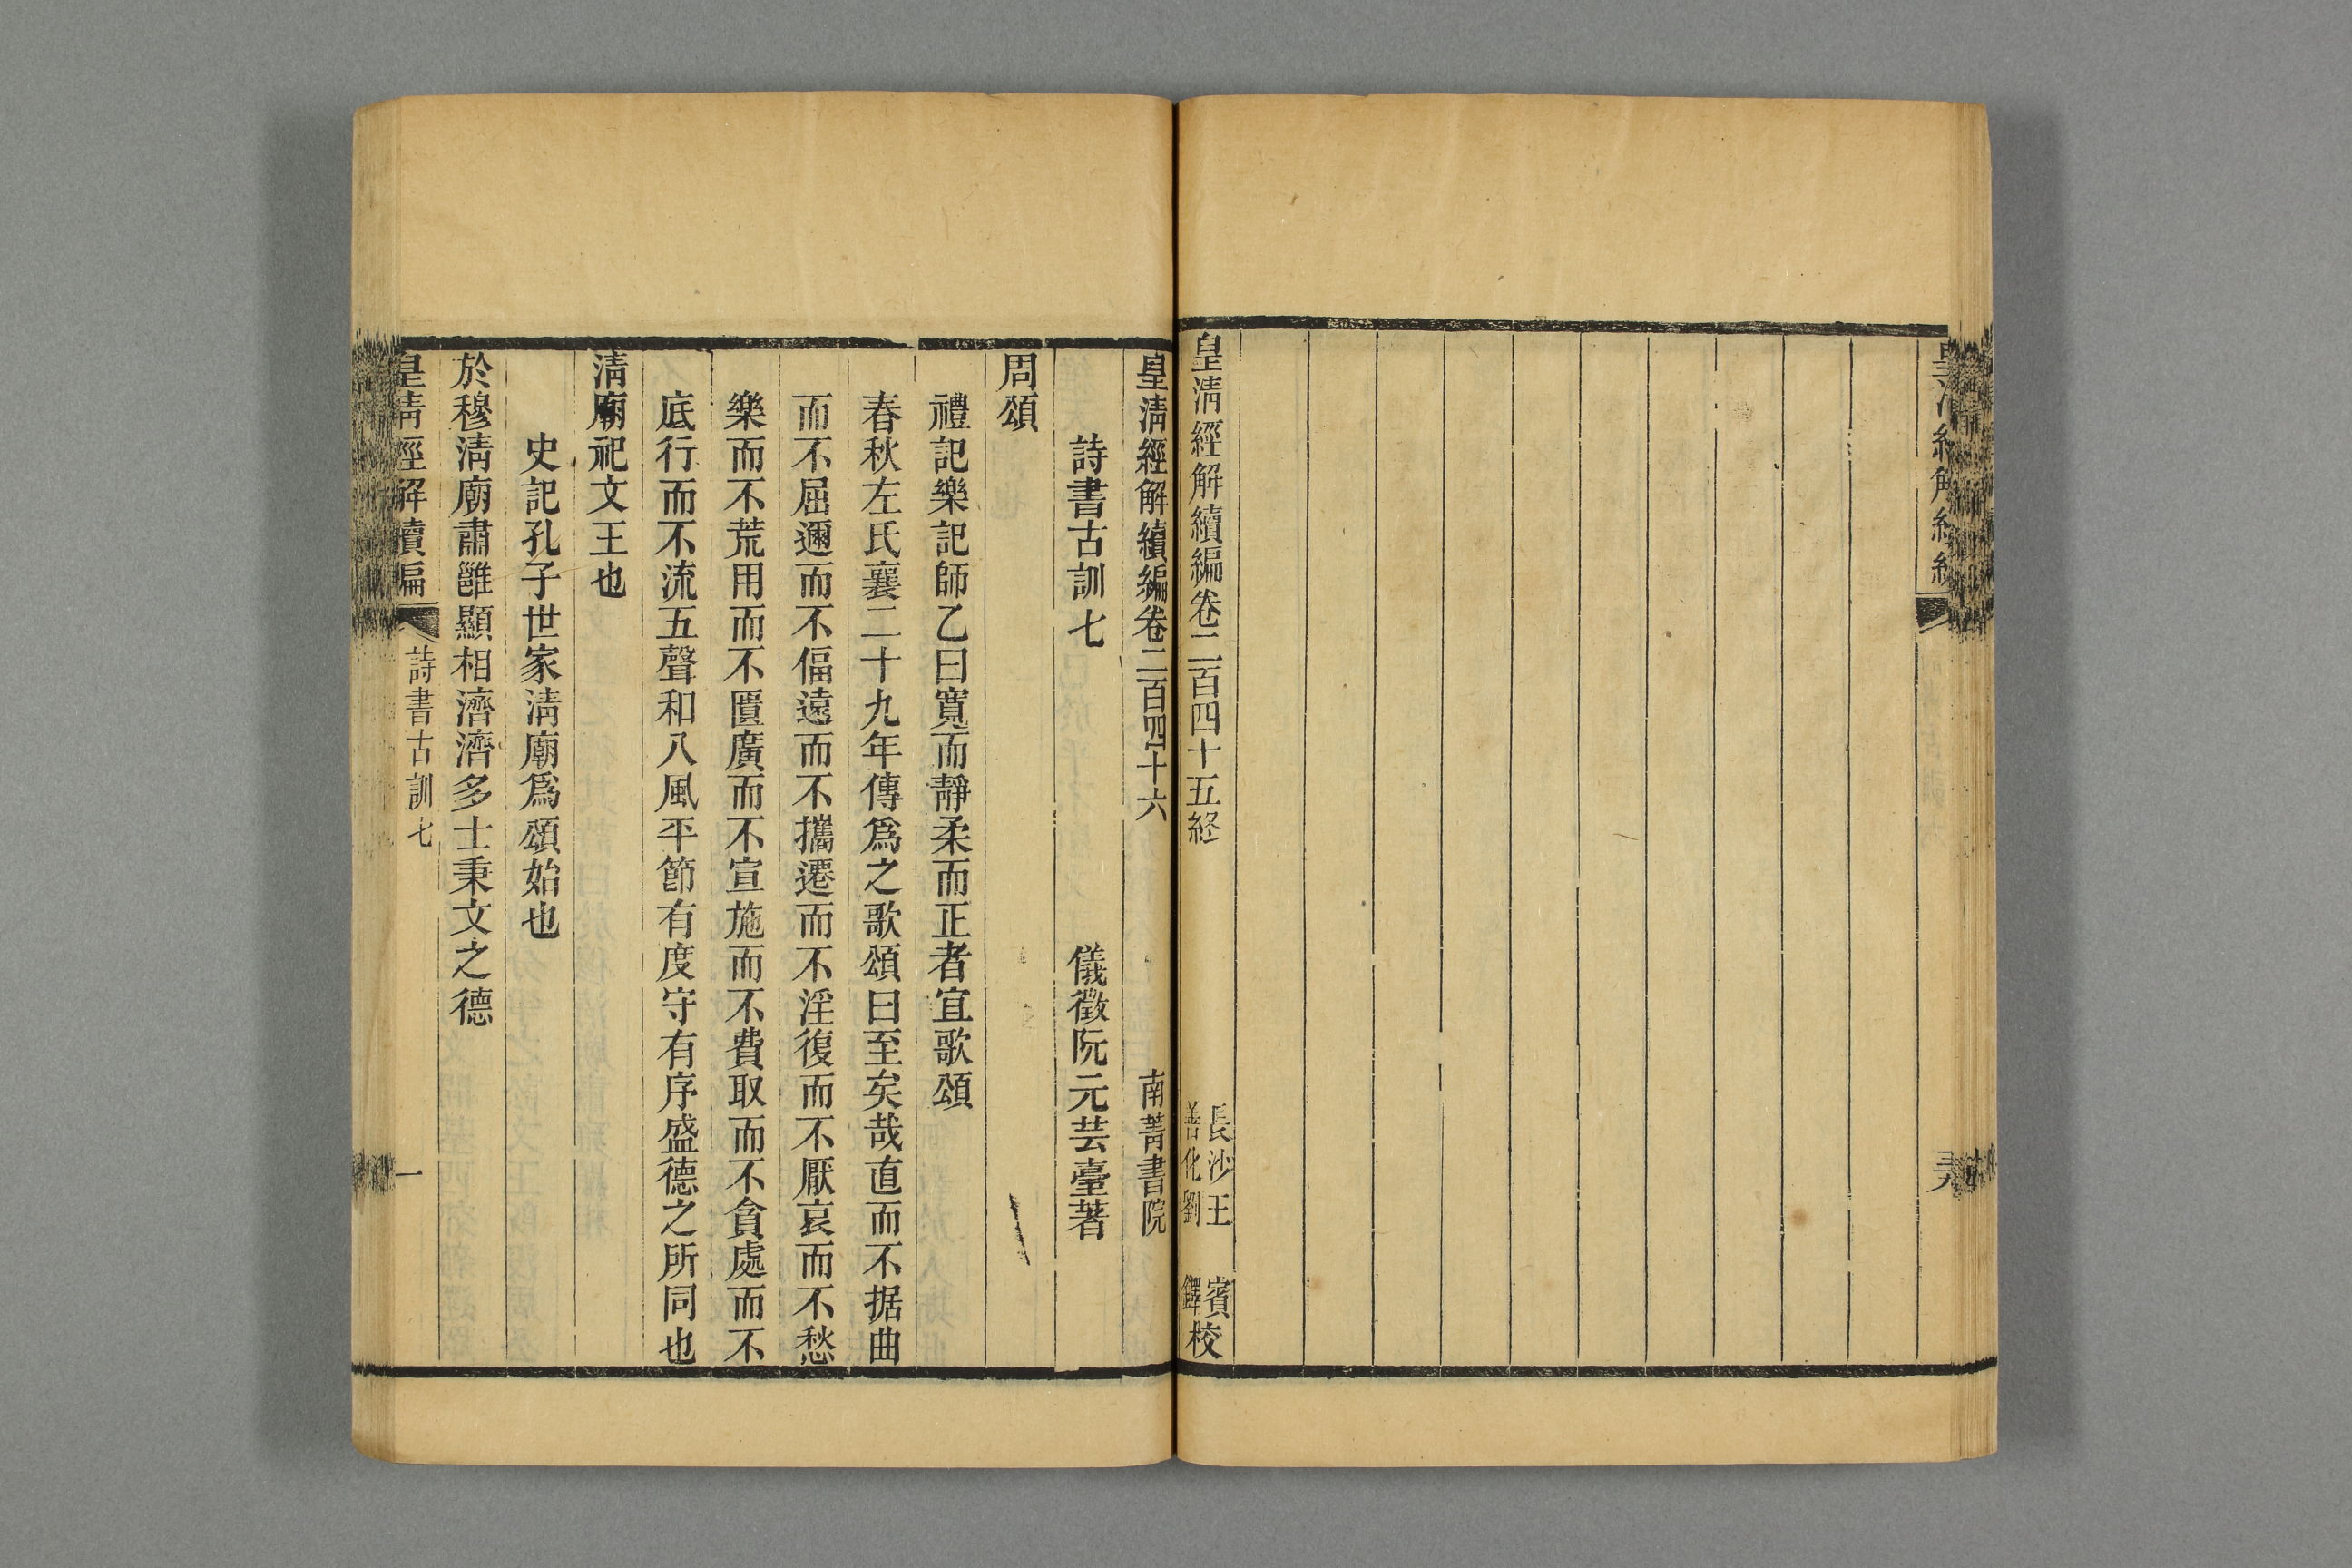 皇清經解續編卷二百四十五終
長沙王 賓
善化劉 鐸
校
皇清經解續編卷二百四十六 南菁書院
詩書古訓七 儀徵阮元芸臺著
周頌
禮記樂記師乙曰寬而靜柔而正者宜歌頌
春秋左氏襄二十九年傳爲之歌頌曰至矣哉直而不据曲
而不屈邇而不偪遠而不攜遷而不淫復而不厭哀而不愁
樂而不荒用而不匱廣而不宣施而不費取而不貪處而不
底行而不流五聲和八風平節有度守有序盛德之所同也
清廟祀文王也
史記孔子世家清廟爲頌始也
於穆清廟肅雝顯相濟濟多士秉文之德
皇清經解續編 詩書古訓七 一